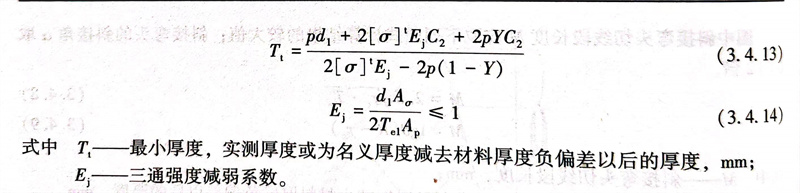 T_t = \frac{pd_1 + 2[σ]^tE_jC_2 + 2pYC_2}{2[σ]^tE_j - 2p(1 - Y)} (3.4.13)
E_j = \frac{d_1A_σ}{2T_{e1}A_p} ≤ 1 (3.4.14)
式中 T_t——最小厚度，实测厚度或为名义厚度减去材料厚度负偏差以后的厚度，mm；
E_j——三通强度减弱系数。